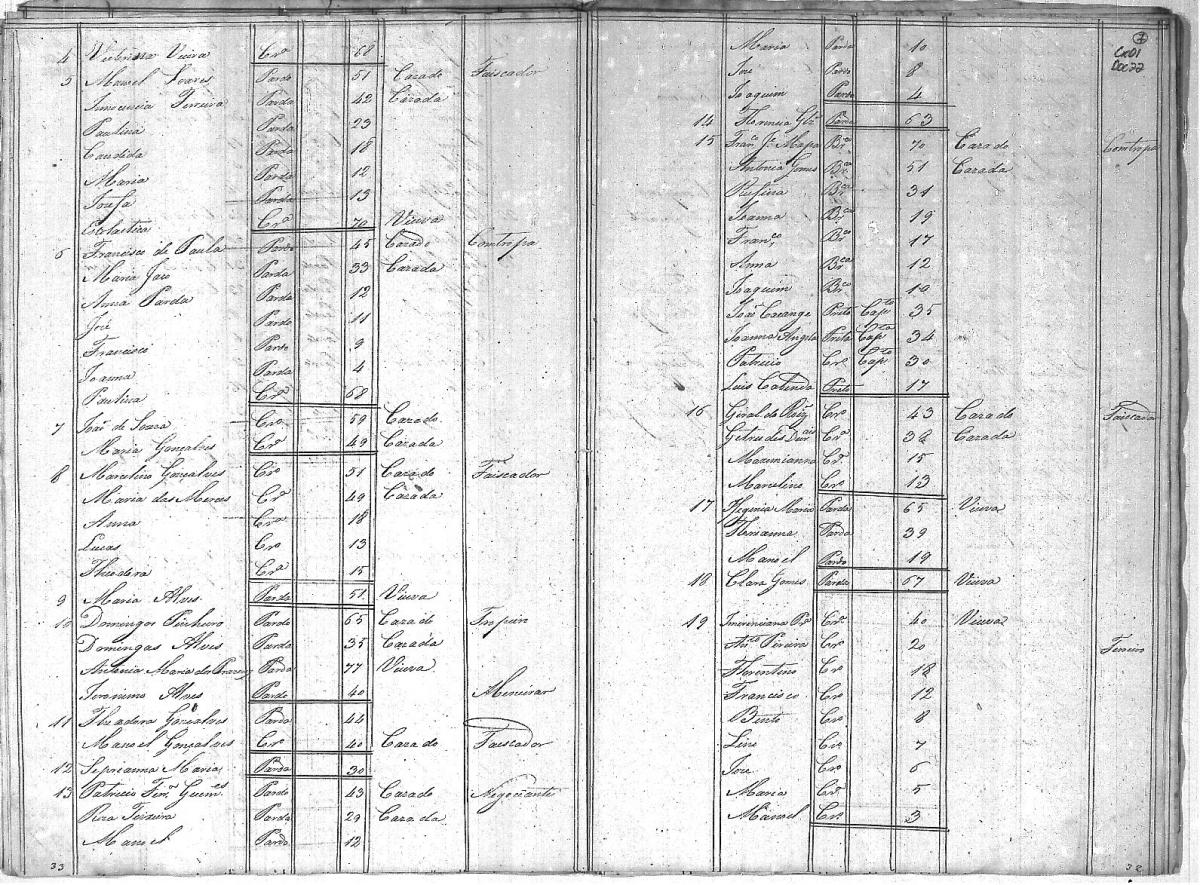 4 Victorina Vieira Crª 68
5 Manoel Soares Pardo 51 Cazado Faiscador
Innocencia Ferreira Parda 42 Cazada
Paulina Parda 23
Candida Parda 18
Maria Parda 12
Josefa Parda 13
Escolastica Crª 70 Viuva
6 Francisco de Paula Pardo 45 Cazado Comtropa
Maria Jaco Parda 33 Cazada
Anna Parda Parda 12
José Pardo 11
Francisco Pardo 9
Joanna Parda 4
Paulina Crª 68
7 Joaõ de Souza Crº 59 Cazado
Maria Gonçalves Crª 49 Cazada
8 Marcelino Gonçalves Crº 51 Cazado Faiscador
Maria das Merces Crª 49 Cazada
Anna Crª 18
Lucas Crº 13
Theodora Crª 15
9 Maria Alves Parda 51 Viuva
10 Domingos Pinheiro Pardo 65 Cazado Tropeiro
Domingas Alves Parda 35 Cazada
Antonia Maria dos Prazeres Parda 77 Viuva
Jeronimo Alves Pardo 40
11 Theadora Gonçalves Parda 44
Manoel Gonçalves Crº 40 Cazado Faiscador
12 Sepreanna Maria Parda 30
13 Patricio Ferª Guimes Pardo 43 Cazado Negociante
Roza Teixeira Parda 29 Cazada
Manoel Pardo 12
33
2
Cx01
Doc 22
Maria Parda 10
José Pardo 8
Joaquim Pardo 4
14 Florencia Glz Parda 63
15 Franco Je Mapa Brco 70 Cazado Comtropa
Antonia Gomes Brca 51 Cazada
Rufina Brca 31
Joanna Brca 19
Franco Brco 17
Anna Brca 12
Joaquim Brco 10
Joaõ Caçange Preto Capto 35
Joanna Angola Preta Capta 34
Patricio Crº Capto 30
Luis Cabinda Preto 17
16 Geraldo Roiz Crº 43 Cazado Faiscador
Getrudes Crª 39 Cazada
Maximianna Crª 15
Marcelino Crº 13
17 Efigenia Maria Parda 65 Viuva
Parda 39
Manoel Pardo 19
18 Clara Gomes Parda 67 Viuva
19 Imerenciana Prª Crª 40 Viuva
Anto Pereira Crº 20 Ferreiro
Florentino Crº 18
Francisco Crº 12
Bento Crº 8
Lino Crº 7
José Crº 6
Maria Crª 5
Manoel Crº 3
32